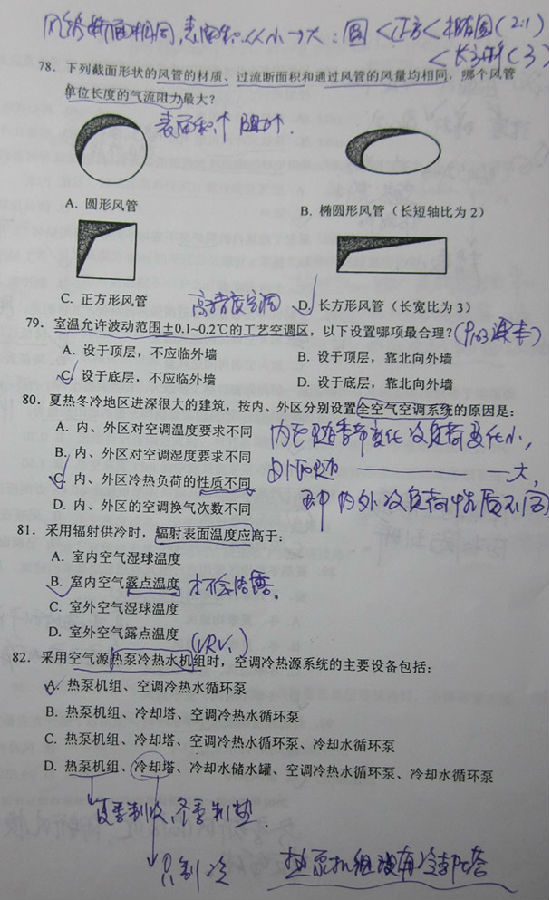 圆<正方<椭圆(2:1)
<长方形(3)
78. 下列截面形状的风管的材质、过流断面积和通过风管的风量均相同，哪个风管
单位长度的气流阻力最大？
表面积↑ 阻力↑.
A. 圆形风管
B. 椭圆形风管（长短轴比为2）
C. 正方形风管
D. 长方形风管（长宽比为3）
高精度空调
79. 室温允许波动范围±0.1~0.2℃的工艺空调区，以下设置哪项最合理？
A. 设于顶层，不应临外墙
B. 设于顶层，靠北向外墙
C. 设于底层，不应临外墙
D. 设于底层，靠北向外墙
80. 夏热冬冷地区进深很大的建筑，按内、外区分别设置全空气空调系统的原因是：
A. 内、外区对空调温度要求不同
B. 内、外区对空调湿度要求不同
C. 内、外区冷热负荷的性质不同
D. 内、外区的空调换气次数不同
内区随季节变化冷负荷变化小,
大,
内外冷负荷性质不同
81. 采用辐射供冷时，辐射表面温度应高于：
A. 室内空气湿球温度
B. 室内空气露点温度
才不会结露.
C. 室外空气湿球温度
D. 室外空气露点温度
(VRV.)
82. 采用空气源热泵冷热水机组时，空调冷热源系统的主要设备包括：
A. 热泵机组、空调冷热水循环泵
B. 热泵机组、冷却塔、空调冷热水循环泵
C. 热泵机组、冷却塔、空调冷热水循环泵、冷却水循环泵
D. 热泵机组、冷却塔、冷却水储水罐、空调冷热水循环泵、冷却水循环泵
夏季制冷,冬季制热
只制冷
热泵机组没有冷却塔